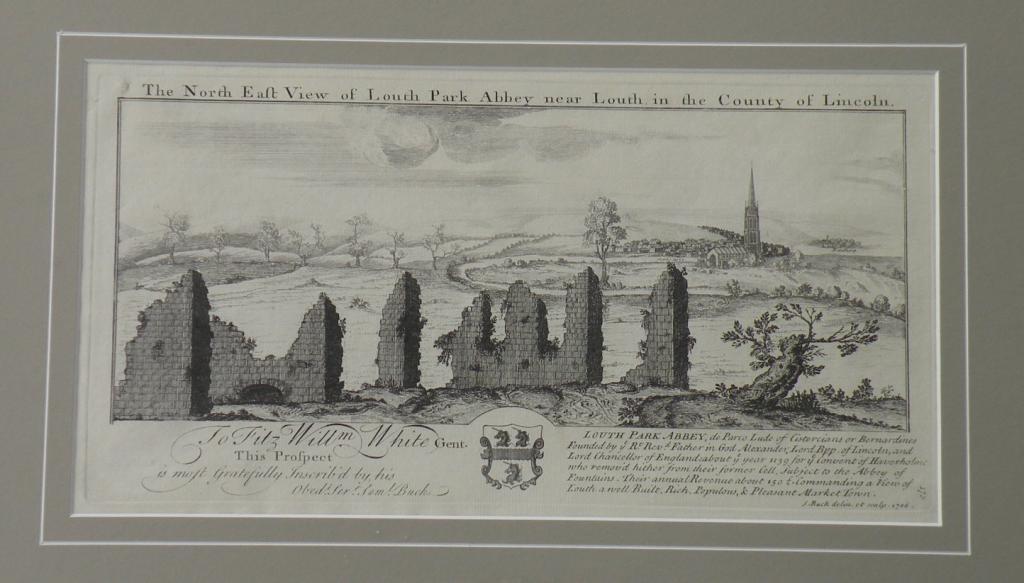 The North East View of Louth Park Abbey near Louth, in the County of Lincoln.
To Fitz Willm. White Gent.
This Prospect
is most Gratefully Inscrib'd by his
Obedt. Servt. Saml. Buck
LOUTH PARK ABBEY, de Parco Lude of Cistercians or Bernardines
Founded by ye. Rt. Revd. Father in God Alexander, Lord Bpp. of Lincoln, and
Lord Chancellor of England about ye year 1139 for ye Convent of Haverholme
who remov'd hither from their former Cell, Subject to the Abbey of
Fountains. Their annual Revenue about 150 £. Commanding a View of
Louth a well Built, Rich, Populous, & Pleasant Market Town.
S. Buck delin. et sculp. 1726